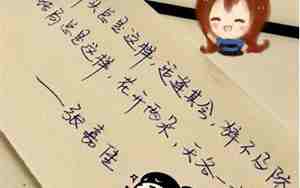 头总是这样，适逢其会，猝不及防
局总是这样，花开两朵，天各一
——张嘉佳